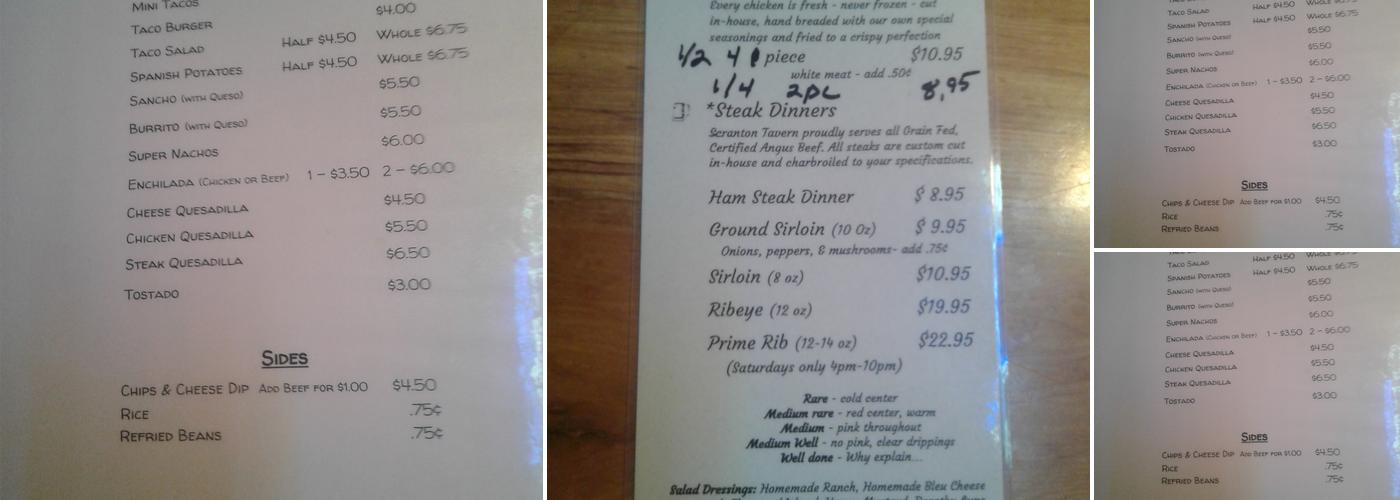 Mini Tacos
Taco Burger $4.00
Taco Salad Half $4.50 Whole $6.75
Spanish Potatoes Half $4.50 Whole $6.75
Sancho (with Queso) $5.50
Burrito (with Queso) $5.50
Super Nachos $6.00
Enchilada (Chicken or Beef) 1 – $3.50 2 – $6.00
Cheese Quesadilla $4.50
Chicken Quesadilla $5.50
Steak Quesadilla $6.50
Tostado $3.00
Sides
Chips & Cheese Dip Add Beef for $1.00 $4.50
Rice .75¢
Refried Beans .75¢
Every chicken is fresh - never frozen - cut
in-house, hand breaded with our own special
seasonings and fried to a crispy perfection
1/2 4 piece $10.95
white meat - add .50¢
1/4 2pc 8,95
*Steak Dinners
Scranton Tavern proudly serves all Grain Fed,
Certified Angus Beef. All steaks are custom cut
in-house and charbroiled to your specifications.
Ham Steak Dinner $ 8.95
Ground Sirloin (10 Oz) $ 9.95
Onions, peppers, & mushrooms- add .75¢
Sirloin (8 oz) $10.95
Ribeye (12 oz) $19.95
Prime Rib (12-14 oz) $22.95
(Saturdays only 4pm-10pm)
Rare - cold center
Medium rare - red center, warm
Medium - pink throughout
Medium Well - no pink, clear drippings
Well done - Why explain...
Salad Dressings: Homemade Ranch, Homemade Bleu Cheese
Taco Salad Half $4.50 Whole $6.75
Spanish Potatoes Half $4.50 Whole $6.75
Sancho (with Queso) $5.50
Burrito (with Queso) $5.50
Super Nachos $6.00
Enchilada (Chicken or Beef) 1 – $3.50 2 – $6.00
Cheese Quesadilla $4.50
Chicken Quesadilla $5.50
Steak Quesadilla $6.50
Tostado $3.00
Sides
Chips & Cheese Dip Add Beef for $1.00 $4.50
Rice .75¢
Refried Beans .75¢
Taco Salad Half $4.50 Whole $6.75
Spanish Potatoes Half $4.50 Whole $6.75
Sancho (with Queso) $5.50
Burrito (with Queso) $5.50
Super Nachos $6.00
Enchilada (Chicken or Beef) 1 – $3.50 2 – $6.00
Cheese Quesadilla $4.50
Chicken Quesadilla $5.50
Steak Quesadilla $6.50
Tostado $3.00
Sides
Chips & Cheese Dip Add Beef for $1.00 $4.50
Rice .75¢
Refried Beans .75¢